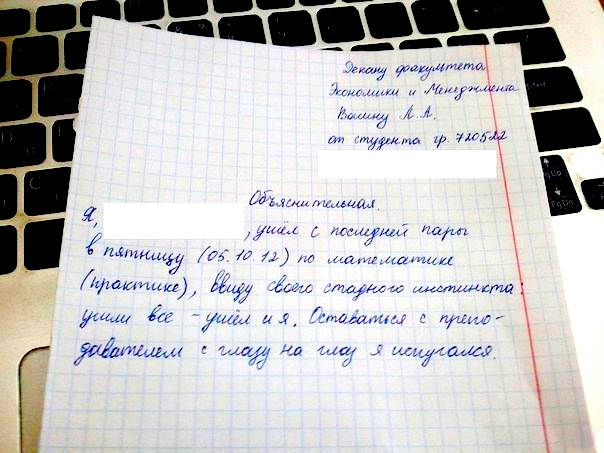 Декану факультета
Экономики и Менеджмента
Васину Л.А.
от студента гр. 720522
Объяснительная.
Я, , ушёл с последней пары
в пятницу (05.10.12) по математике
(практике), ввиду своего стадного инстинкта:
ушли все - ушёл и я. Оставаться с препо-
давателем с глазу на глаз я испугался.
PgUp
PgDn